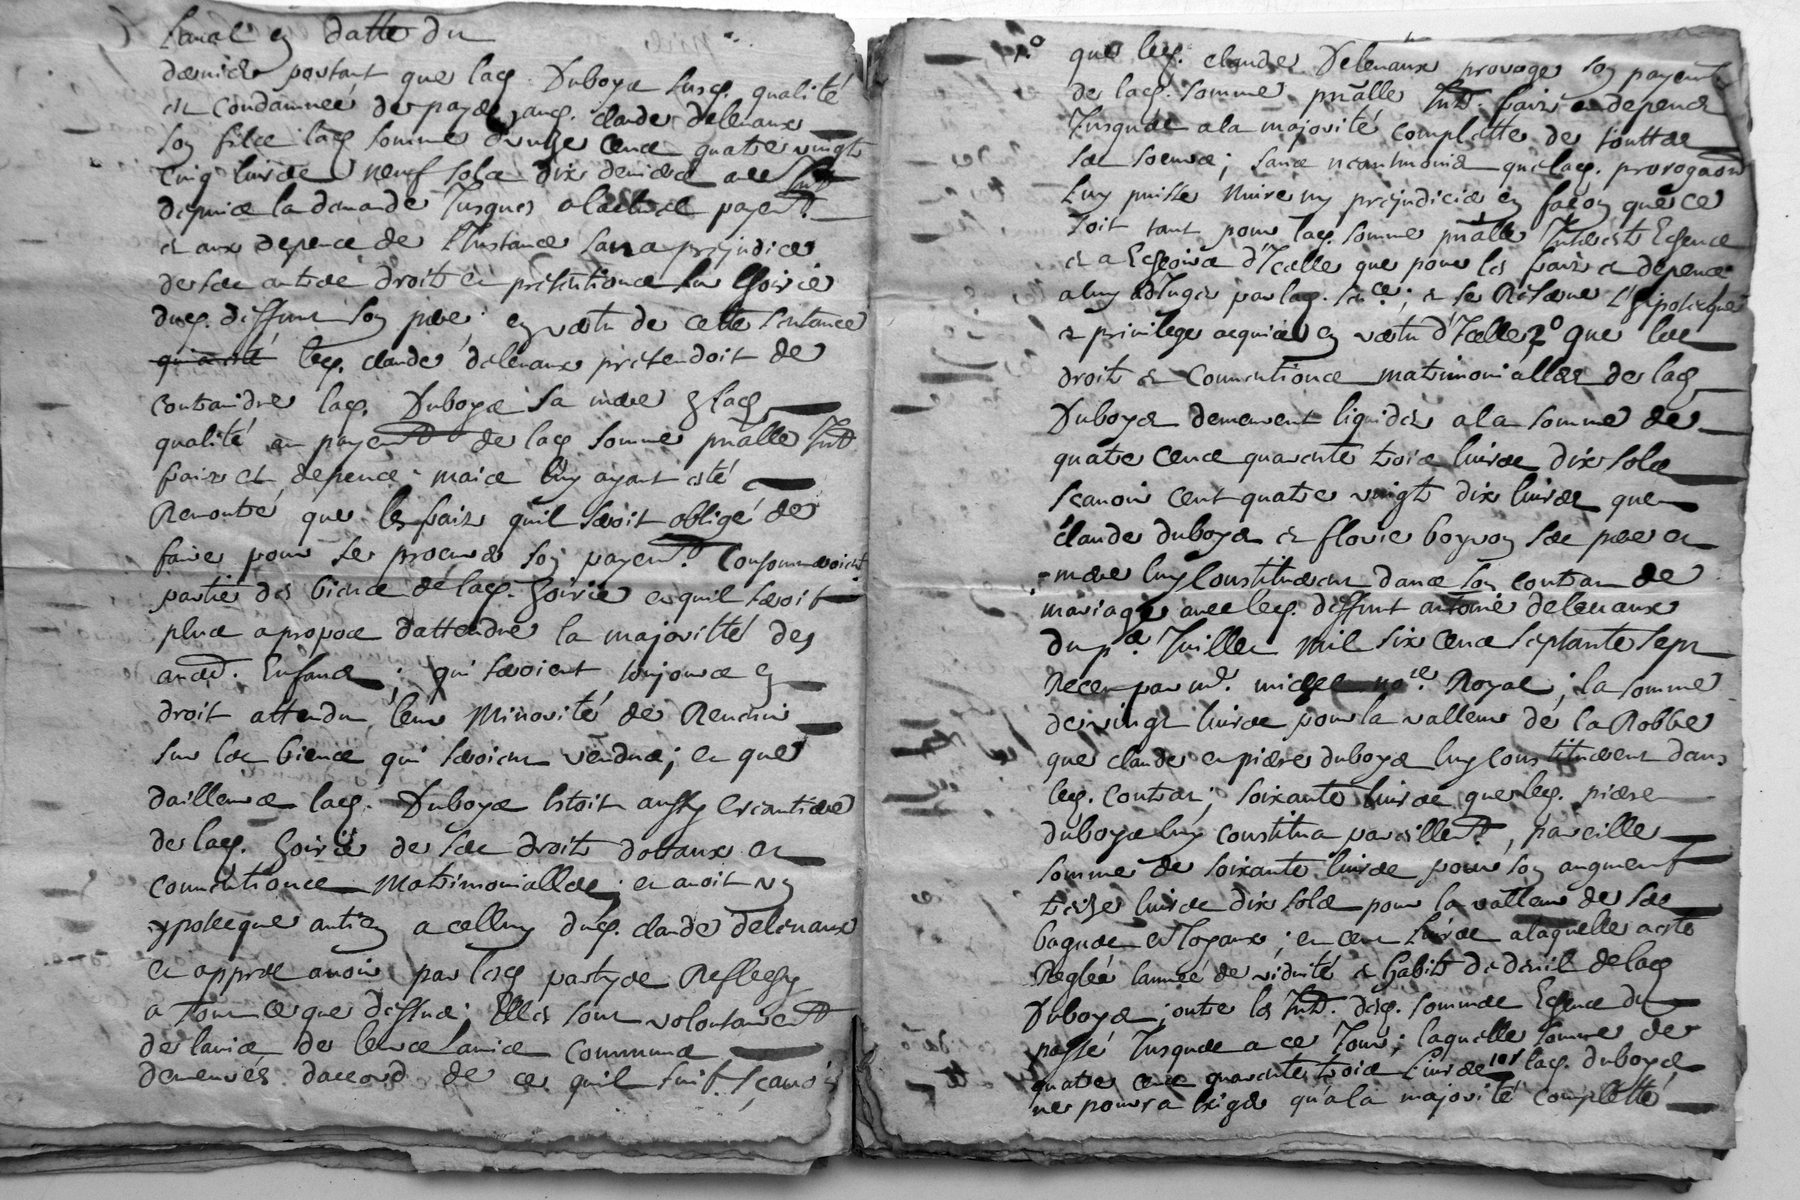 Lanal en datte du
dernier portant que lad. Duboys susd. qualité
est condamnée de payer aud. claude delenaux
son fils lad. somme d'unze cens quatre vingts
cinq livres neuf sols dix deniers avec Int.
depuis la demande Jusques a l'actuel payent.
et aux depens de l'Instance sans prejudice
de ses autres droits et pretentions sur l'hoirie
dud. deffunt son pere; en vertu de cette sentence
led. claude delenaux pretendoit de
contraindre lad. Duboys sa mere en lad.
qualité au payent. de lad. somme pnalle Int.
fraix et depens; mais luy ayant esté
Remontré que les fraix quil seroit obligé de
faire pour se procurer son payent. consommeroient
partie des biens de lad. hoirie et quil seroit
plus apropos d'attendre la majorité des
autres Enfans; qui seroient toujours en
droit attendu leur Minorité de Revenir
sur les biens qui seroient vendus; et que
dailleurs lad. Duboys estoit aussy creantiere
de lad. hoirie de ses droits dotaux et
conventions Matrimonialles; et avoit un
ypotecque antien a celluy dud. claude delenaux
et apprès avoir par lesd. partyes Reflechy
a tout ce que dessus; Elles sont volontairent.
de lavis de leurs amis communs
demeurés d'accord de ce quil suit, sçavoir
1º que led. claude Delenaux proroge son payent.
de lad. somme pnalle Int. fraix et depens
Jusques a la majorité complette de touttes
ses soeurs; sans neantmoins que lad. prorogaon
luy puisse Nuire ny prejudicier en façon que ce
soit tant pour lad. somme pnalle Interests Echeus
et a Echoir d'Icelle que pour les fraix et depens
a luy adjugés par lad. sence; et se Reserve l'hipotecque
et privilege acquis en vertu d'Icelle, 2º que les
droits et Conventions matrimonialles de lad.
Duboys demeurent liquidés a la somme de
quatre cens quarente trois livres dix sols
sçavoir cent quatre vingts dix livres que
claude duboys et florie boyron ses pere et
mere luy constituerent dans son contrat de
mariage avec led. deffunt antoine delenaux
du pr. Juillet mil six cens septante sept
Receu par me. michel nore. Royal; la somme
de vingt livres pour la valleur de la Robbe
que claude et pierre duboys luy constituerent dans
led. contrat; soixante livres que led. pierre
duboys luy constitua pareillent., pareille
somme de soixante livres pour son augment
treize livres dix sols pour la valleur de ses
bagues et Joyaux; et cent livres a laquelle a esté
Reglée l'année de viduité et habits de deuil de lad.
Duboys; outre les Int. desd. sommes Echeus du
passé Jusques a ce Jour; laquelle somme de
quatre cens quarente trois livres 10s lad. duboys
ne pourra Exiger qu'a la majorité complette